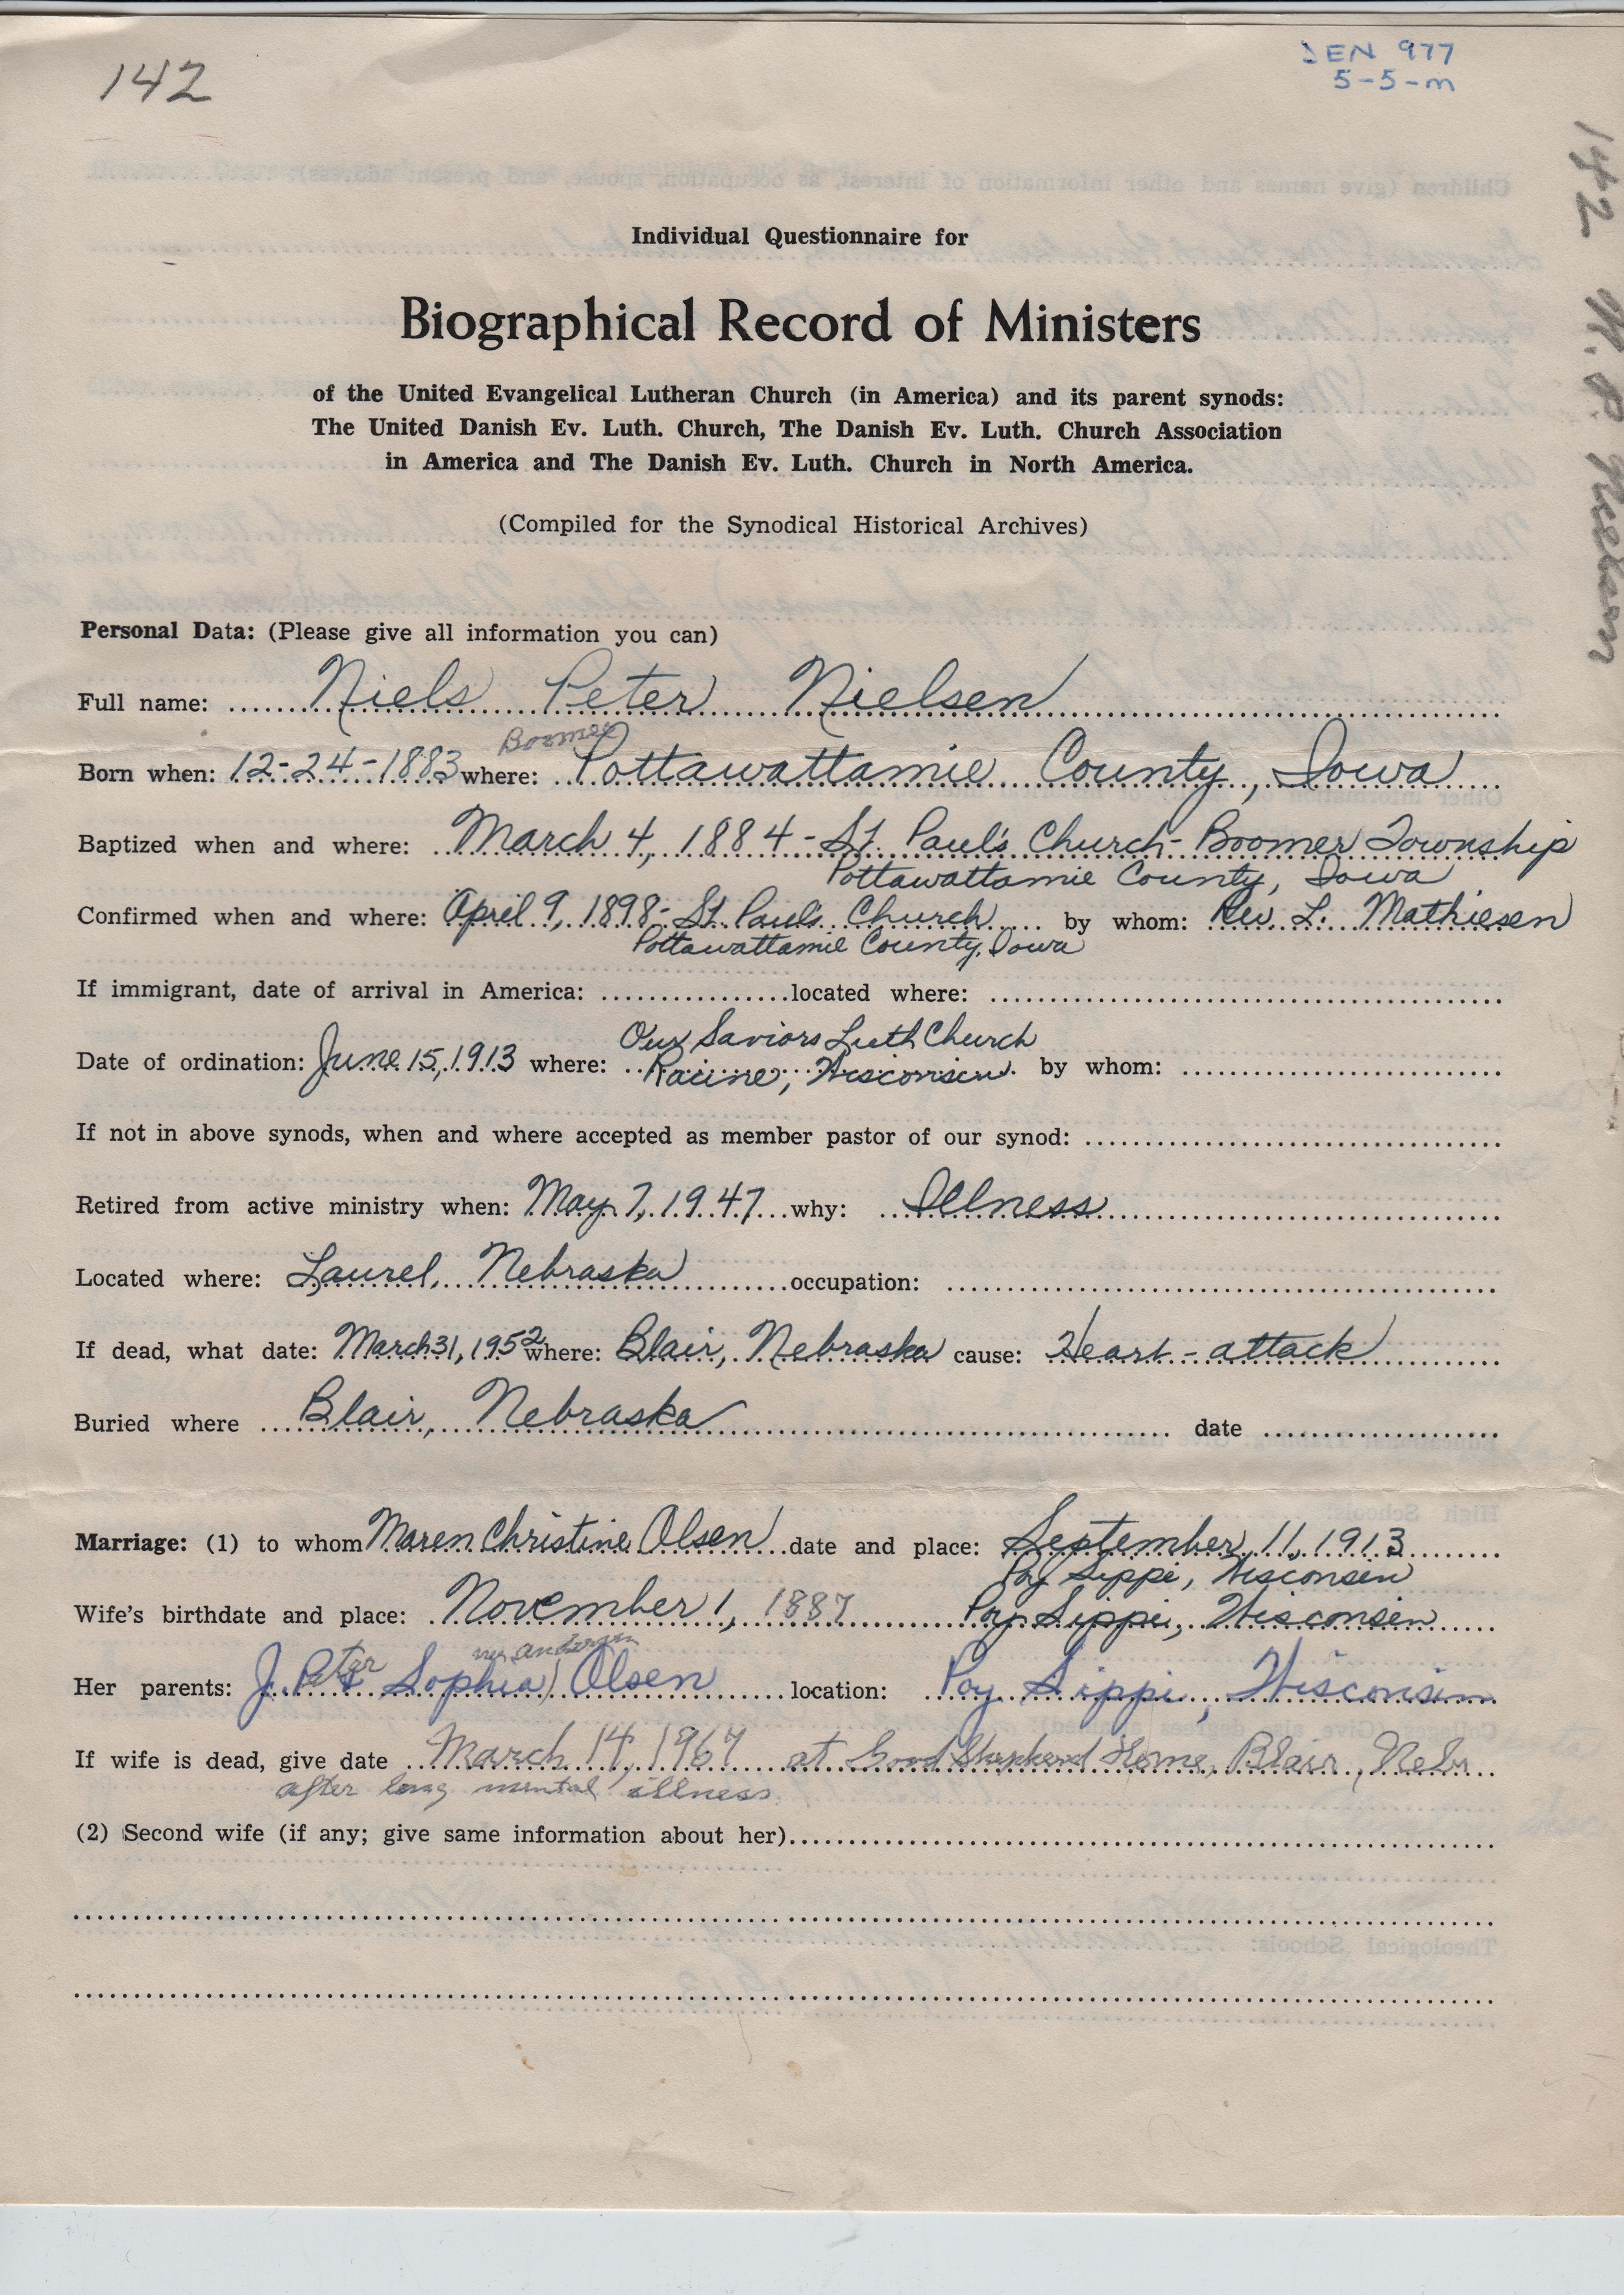 142
DEN 977
5-5-m
142 N. P. Nielsen
Individual Questionnaire for
Biographical Record of Ministers
of the United Evangelical Lutheran Church (in America) and its parent synods:
The United Danish Ev. Luth. Church, The Danish Ev. Luth. Church Association
in America and The Danish Ev. Luth. Church in North America.
(Compiled for the Synodical Historical Archives)
Personal Data: (Please give all information you can)
Full name: Niels Peter Nielsen
Boomer
Born when: 12-24-1883 where: Pottawattamie County, Iowa
Baptized when and where: March 4, 1884 - St. Paul's Church - Boomer Township
Pottawattamie County, Iowa
Confirmed when and where: April 9, 1898 - St. Paul's Church by whom: Rev. L. Mathiesen
Pottawattamie County, Iowa
If immigrant, date of arrival in America: located where:
Our Saviors Luth Church
Date of ordination: June 15, 1913 where: Racine, Wisconsin by whom:
If not in above synods, when and where accepted as member pastor of our synod:
Retired from active ministry when: May 7, 1947 why: Illness
Located where: Laurel, Nebraska occupation:
If dead, what date: March 31, 1952 where: Blair, Nebraska cause: Heart-attack
Buried where Blair, Nebraska date
Marriage: (1) to whom Maren Christine Olsen date and place: September 11, 1913
Poy Sippi, Wisconsin
Wife's birthdate and place: November 1, 1887 Poy Sippi, Wisconsin
Her parents: J. Peter & Sophia Olsen location: Poy Sippi, Wisconsin
If wife is dead, give date March 14, 1967 at Good Shepherd Home, Blair, Nebr
after long mental illness
(2) Second wife (if any; give same information about her)